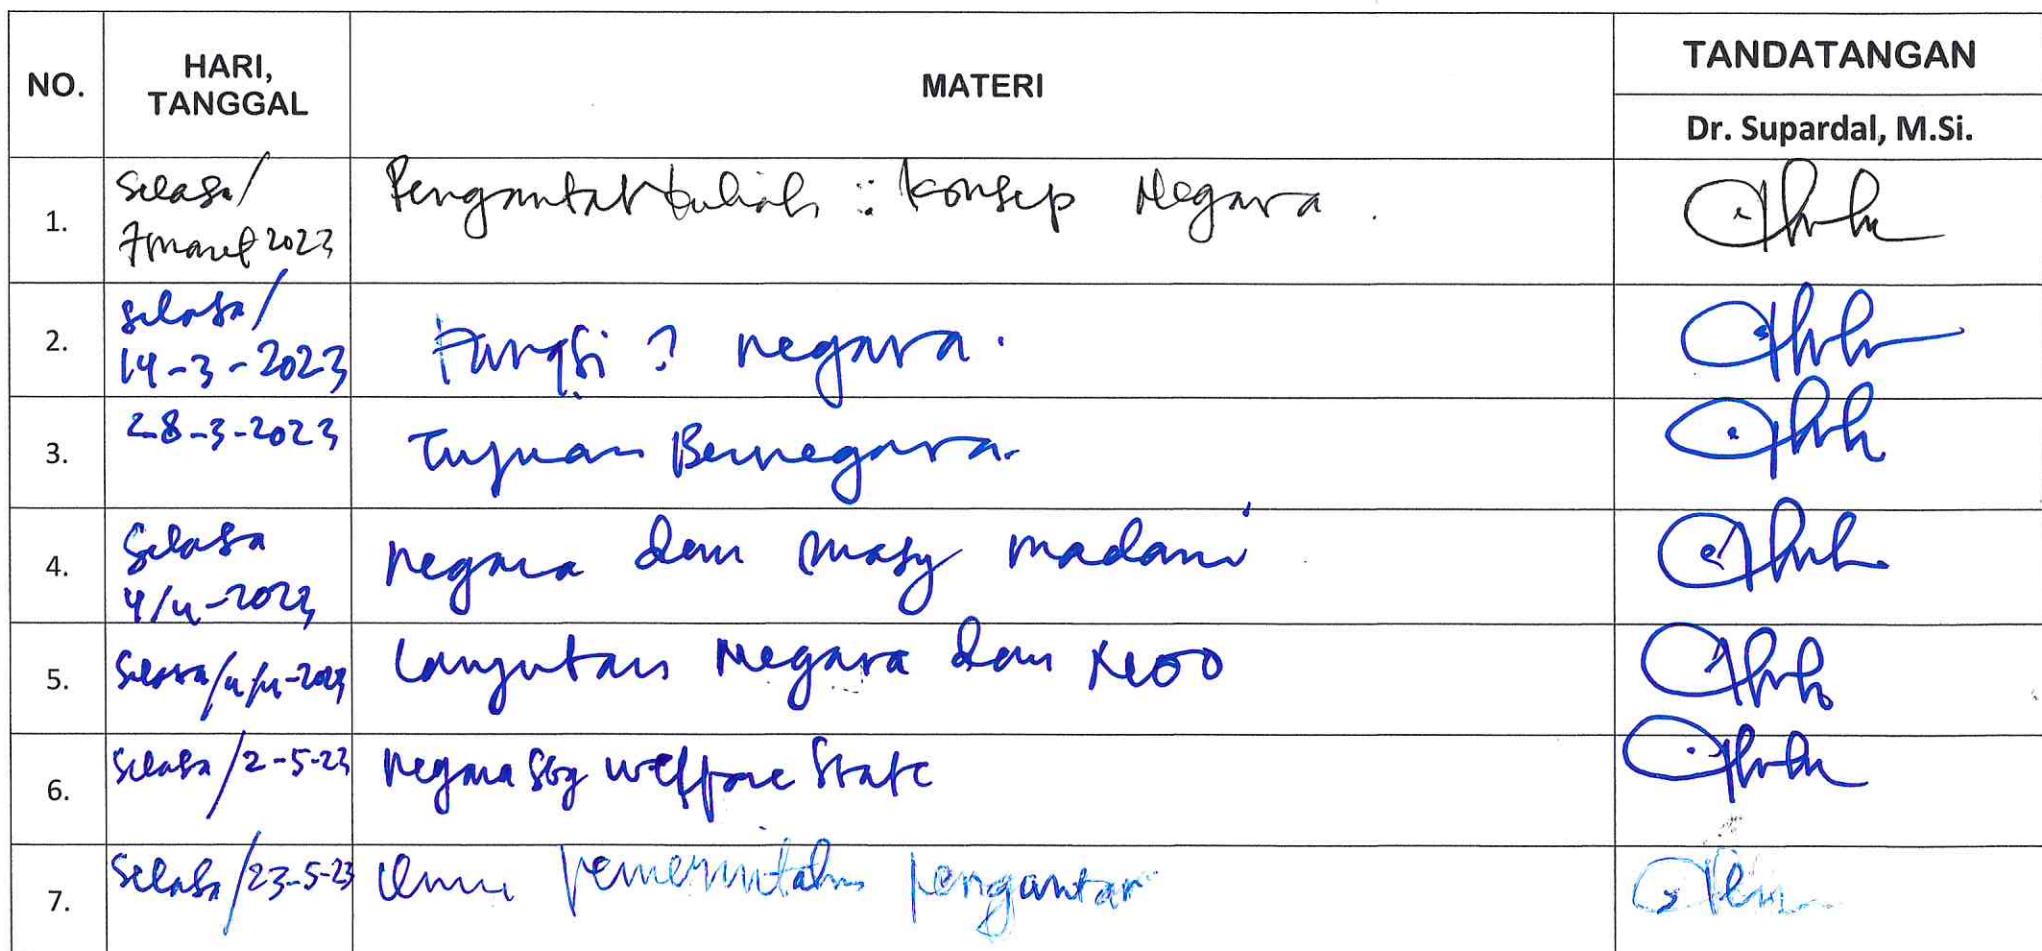 NO.
HARI,
TANGGAL
MATERI
TANDATANGAN
Dr. Supardal, M.Si.
1.
Selasa/
7 maret 2023
Pengantar kuliah : Konsep Negara.
2.
Selasa/
14-3-2023
Fungsi ? negara.
3.
28-3-2023
Tujuan Bernegara.
4.
Selasa
4/4-2023
negara dan masy madani
5.
Selasa/11/4-2023
Lanjutan Negara dan
6.
Selasa/2-5-23
negara sbg welfare State
7.
Selasa/23-5-23
Ilmu pemerintahan pengantar